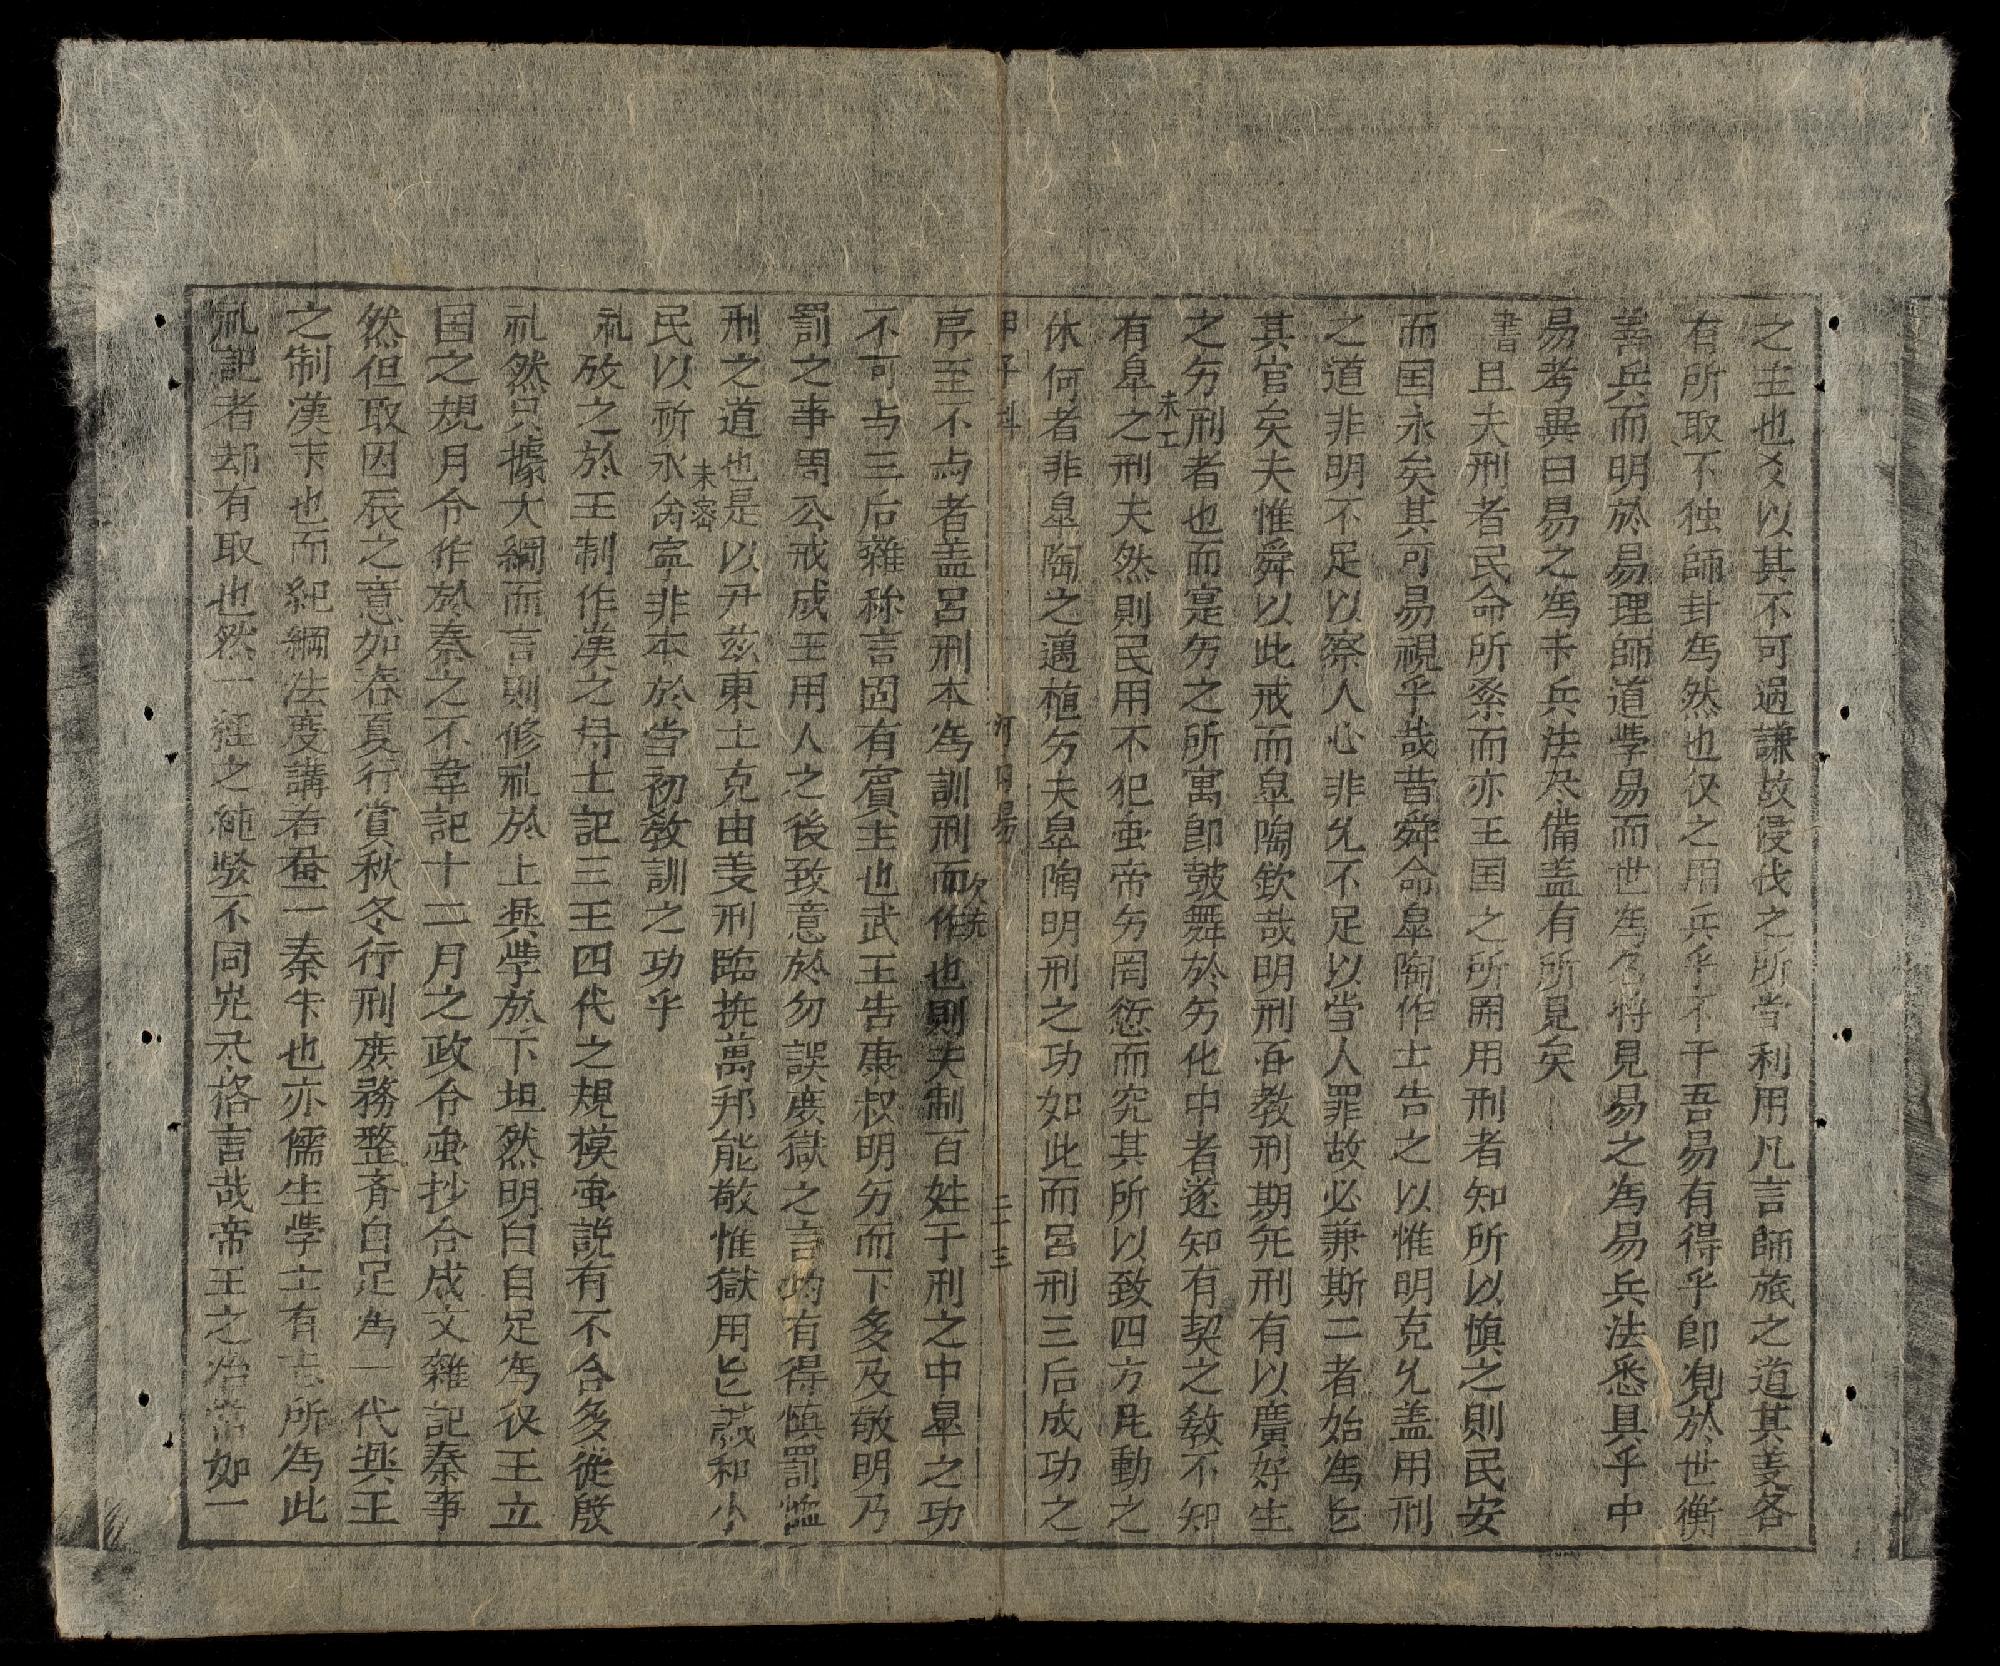 之主也爻以其不可過謙故侵伐之所當利用凡言師旅之道其妾各
有所取不独師卦為然也仅之用兵乎不于吾易有得乎即覌於世衡
善兵而明於易理師道斈易而世為名将見易之為易兵法悉具乎中
易考異曰易之為卡兵法尽備盖有所見矣
書且夫刑者民命所系而亦王国之所用用刑者知所以慎之則民安
而囯永矣其可易視乎哉昔舜命皐陶作士告之以惟明克允盖用刑
之道非明不足以察人心非允不足以当人罪故必兼斯二者始為
其官矣夫惟舜以此戒而皐陶欽哉明刑教刑期旡刑有以廣好生
之刑者也而寔之所寓即鼓舞於化中者遂知有契之敎不知
未工
有皐之刑夫然則民用不犯帝罔愆而究其所以致四方動之
休何者非皐陶之邁植夫皐陶明刑之功如此而呂刑三后成功之
甲子科 河囯易 二十三
序至不与者盖呂刑本為訓刑而作也則夫制百姓于刑之中皐之功
欠斻
不可与三后雜称言固有賓主也武王告康叔明而下多及敬明乃
罰之事周公戒成王用人之後致意於勿誤庶獄之言均有得慎罰
刑之道也是以尹兹東土克由姜刑臨撫萬邦能敬惟獄用誠和小
未密
民以祈永寜非本於当初敎訓之功乎
礼攷之於王制作漢之士記三王四代之規模説有不合多從殷
礼然只據大綱而言則修礼於上興斈於下坦然明白自足為仅王立
国之規月令作於秦之不韋記十二月之政令抄合成文雜記秦事
然但取因辰之意如春夏行賞秋冬行刑庶務整斉自足為一代興王
之制漢卡也而紀綱法度講若一秦卡也亦儒生斈士有志所為此
礼記者却有取也然一経之純駁不同旡格言哉帝王之治常如一